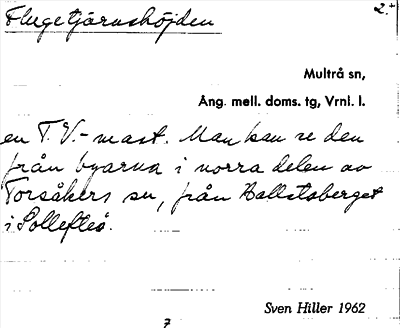 Flugetjärnshöjden
2.+
Multrå sn,
Ång. mell. doms. tg, Vrnl. l.
en T.V.-mast. Man kan se den
från byarna i norra delen av
Torsåkers sn, från Hallstaberget
i Sollefteå.
Sven Hiller 1962
7